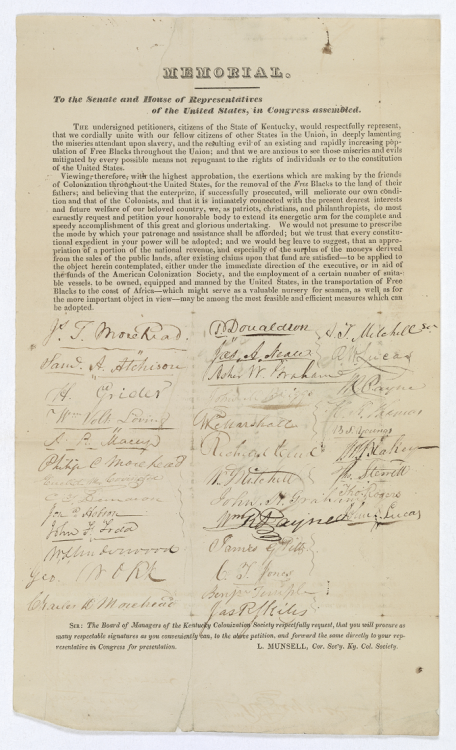 MEMORIAL.
To the Senate and House of Representatives
of the United States, in Congress assembled.
THE undersigned petitioners, citizens of the State of Kentucky, would respectfully represent,
that we cordially unite with our fellow citizens of other States in the Union, in deeply lamenting
the miseries attendant upon slavery, and the resulting evil of an existing and rapidly increasing pop-
ulation of Free Blacks throughout the Union; and that we are anxious to see those miseries and evils
mitigated by every possible means not repugnant to the rights of individuals or to the constitution
of the United States.
Viewing, therefore, with the highest approbation, the exertions which are making by the friends
of Colonization throughout the United States, for the removal of the Free Blacks to the land of their
fathers; and believing that the enterprize, if successfully prosecuted, will meliorate our own condi-
tion and that of the Colonists, and that it is intimately connected with the present dearest interests
and future welfare of our beloved country, we, as patriots, christians, and philanthropists, do most
earnestly request and petition your honorable body to extend its energetic arm for the complete and
speedy accomplishment of this great and glorious undertaking. We would not presume to prescribe
the mode by which your patronage and assistance shall be afforded; but we trust that every consti-
tutional expedient in your power will be adopted; and we would beg leave to suggest, that an appro-
priation of a portion of the national revenue, and especially of the surplus of the moneys derived
from the sales of the public lands, after existing claims upon that fund are satisfied—to be applied to
the object herein contemplated, either under the immediate direction of the executive, or in aid of
the funds of the American Colonization Society, and the employment of a certain number of suita-
ble vessels, to be owned, equipped and manned by the United States, in the transportation of Free
Blacks to the coast of Africa—which might serve as a valuable nursery for seamen, as well as for
the more important object in view—may be among the most feasible and efficient measures which can
be adopted.
Js. T. Morehead.
Saml. A. Atchison
H. Grider
Wm Volt. Loving
A. R. Macey
Philip C Morehead
John F. Todd
Geo. C. YORK
Charles D Morehead
Donaldson
Jas. A.
Asher W. Graham
Marshall
W. Mitchill
John H. Graham
Wm Payne
James G
C. T. Jones
Jas R Skiles
A. T. Mitchell
Lucas
Payne
B. J. Jennings
Stewett
Thos Rogers
Lucas
SIR: The Board of Managers of the Kentucky Colonization Society respectfully request, that you will procure as
many respectable signatures as you conveniently can, to the above petition, and forward the same directly to your rep-
resentative in Congress for presentation. L. MUNSELL, Cor. Sec'y. Ky. Col. Society.